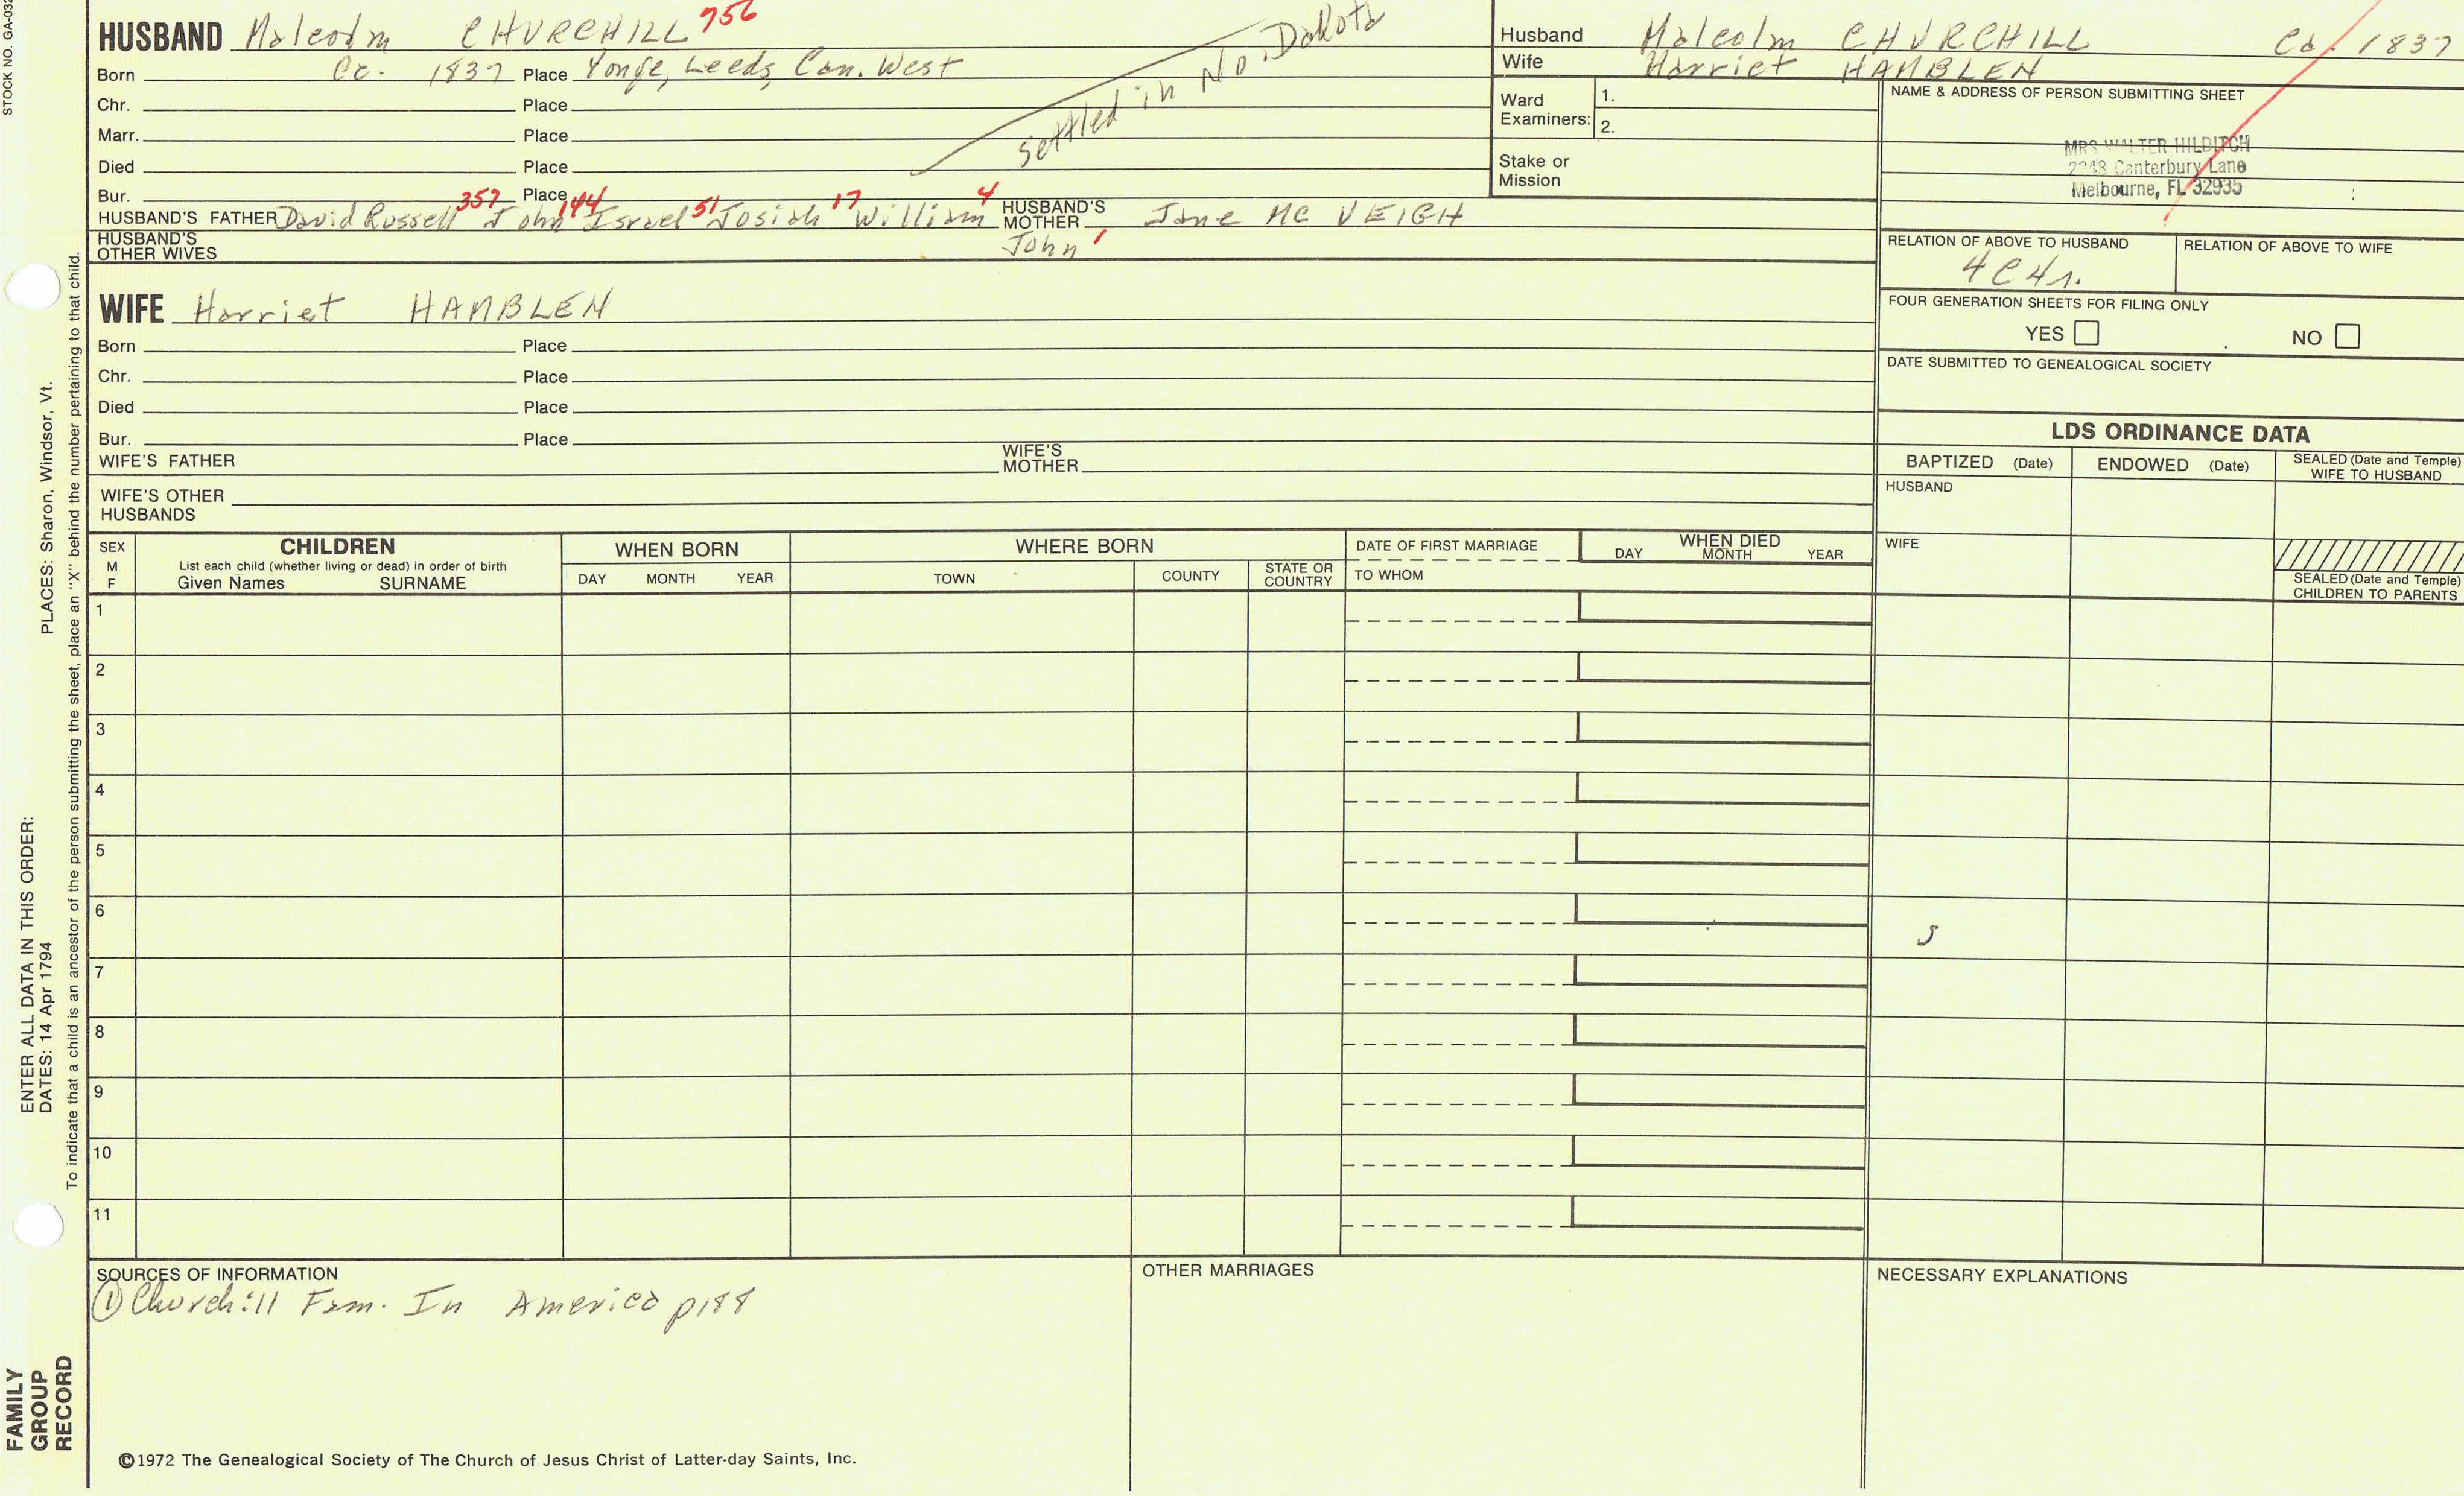 STOCK NO. GA-032
HUSBAND Malcolm CHURCHILL 756
Born Cc. 1837 Place Yonge, Leeds, Can. West
Chr. Place
Marr. Place
Died Place
Bur. Place
settled in No. Dakota
HUSBAND'S FATHER David Russell 357 John 144 Israel 51 Josiah 17 William 4 HUSBAND'S MOTHER Jane Mc VEIGH
John 1
HUSBAND'S OTHER WIVES
WIFE Harriet HAMBLEN
Born Place
Chr. Place
Died Place
Bur. Place
WIFE'S FATHER WIFE'S MOTHER
WIFE'S OTHER HUSBANDS
Husband Malcolm CHURCHILL Ca. 1837
Wife Harriet HAMBLEN
Ward Examiners: 1.
2.
Stake or Mission
NAME & ADDRESS OF PERSON SUBMITTING SHEET
MRS WALTER HILDITCH
2248 Canterbury Lane
Melbourne, FL 32935
RELATION OF ABOVE TO HUSBAND RELATION OF ABOVE TO WIFE
4C4r.
FOUR GENERATION SHEETS FOR FILING ONLY
YES NO
DATE SUBMITTED TO GENEALOGICAL SOCIETY
LDS ORDINANCE DATA
BAPTIZED (Date) ENDOWED (Date) SEALED (Date and Temple) WIFE TO HUSBAND
HUSBAND
WIFE
SEALED (Date and Temple) CHILDREN TO PARENTS
SEX M F
CHILDREN
List each child (whether living or dead) in order of birth
Given Names SURNAME
WHEN BORN
DAY MONTH YEAR
WHERE BORN
TOWN COUNTY STATE OR COUNTRY
DATE OF FIRST MARRIAGE
TO WHOM
WHEN DIED
DAY MONTH YEAR
1
2
3
4
5
6
7
8
9
10
11
SOURCES OF INFORMATION
① Churchill Fam. In America p188
OTHER MARRIAGES
NECESSARY EXPLANATIONS
©1972 The Genealogical Society of The Church of Jesus Christ of Latter-day Saints, Inc.
ENTER ALL DATA IN THIS ORDER:
DATES: 14 Apr 1794
PLACES: Sharon, Windsor, Vt.
To indicate that a child is an ancestor of the person submitting the sheet, place an "X" behind the number pertaining to that child.
FAMILY
GROUP
RECORD